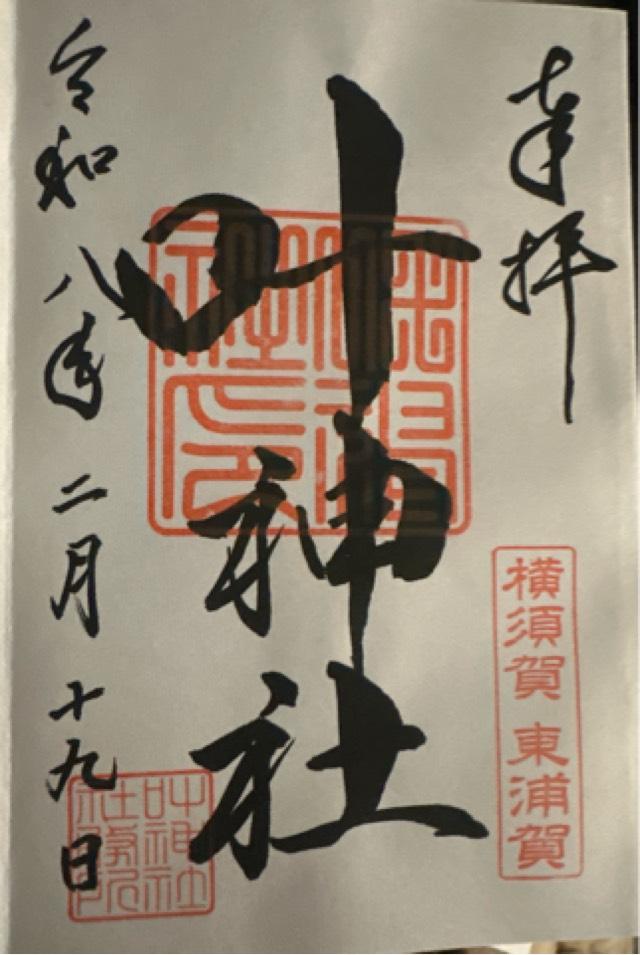 奉拝
横須賀 東浦賀
叶神社
令和八年 二月 十九日
叶神社
社務所